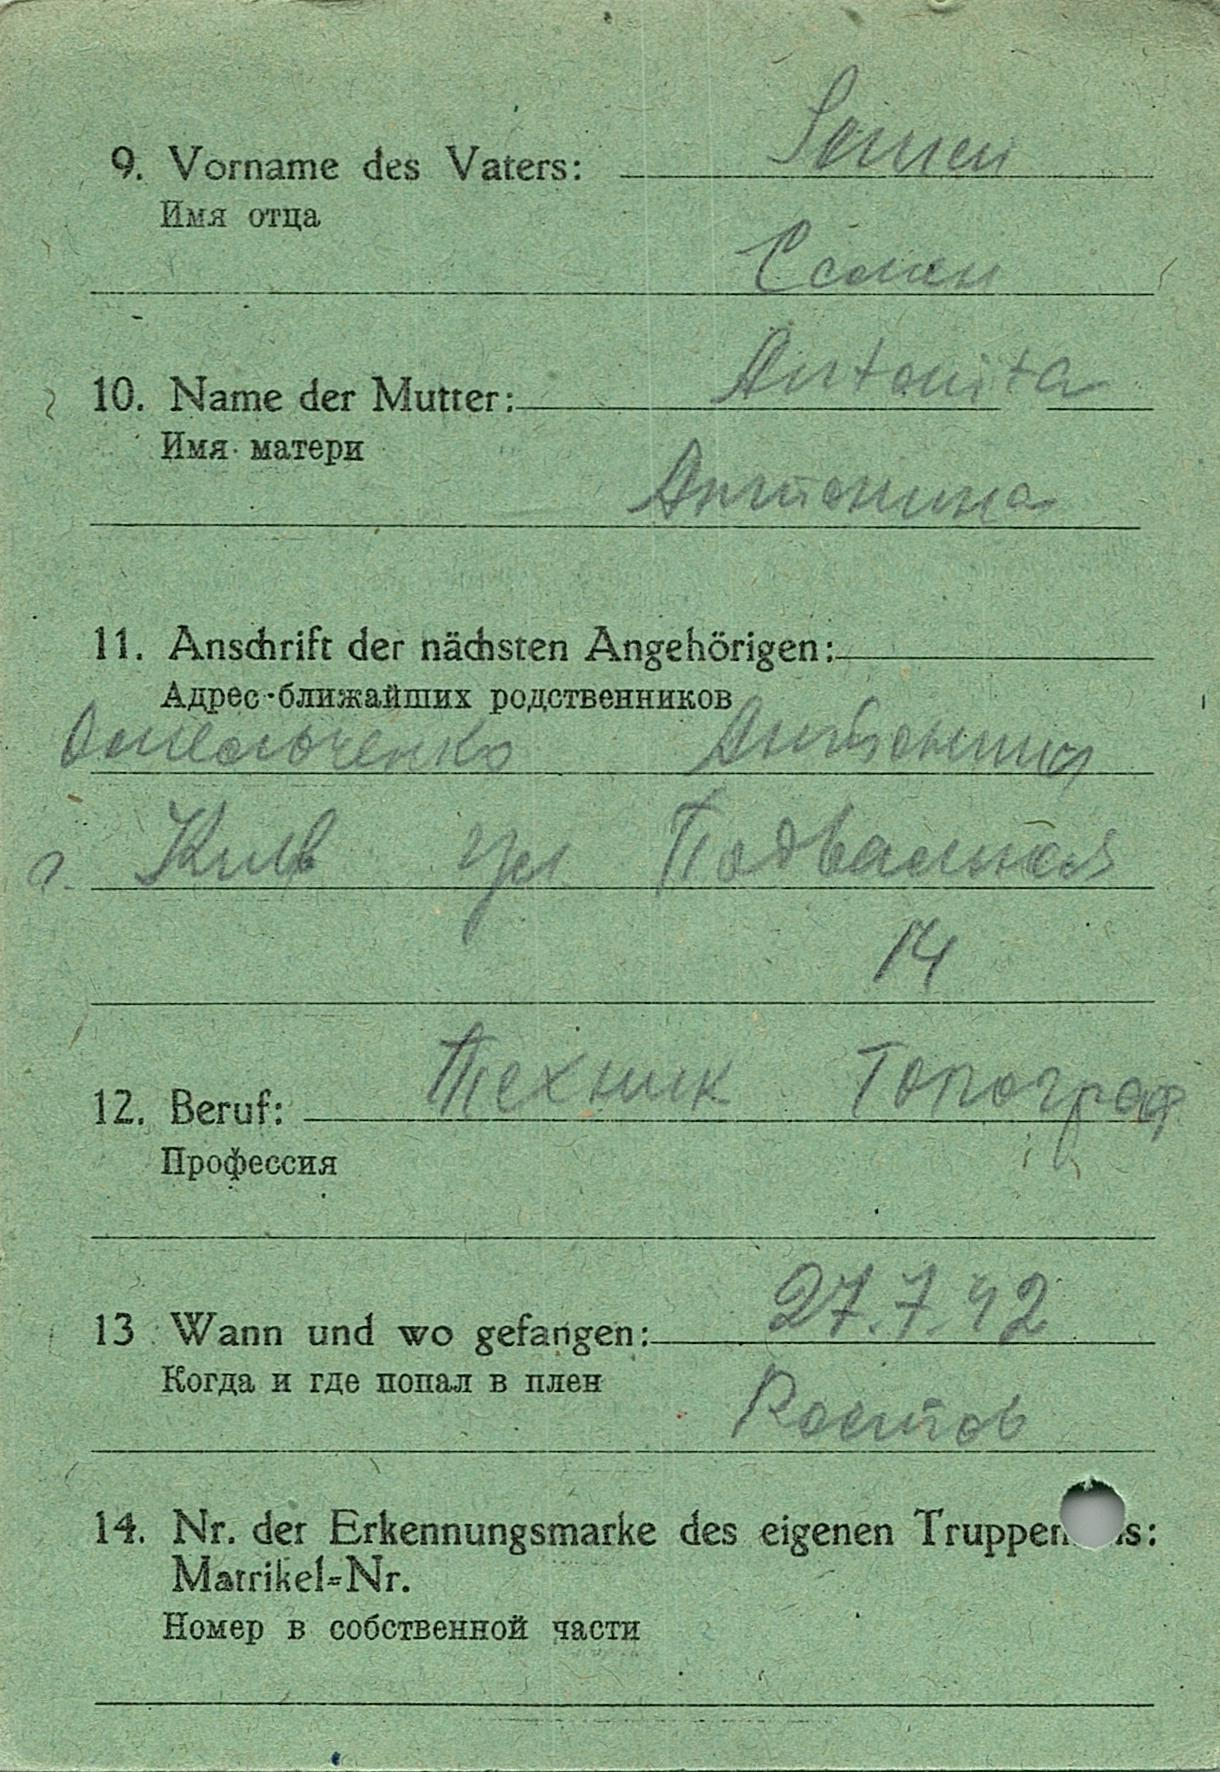 9. Vorname des Vaters: Semen
Имя отца
Семен
10. Name der Mutter: Antonita
Имя матери
Антонина
11. Anschrift der nächsten Angehörigen:
Адрес ближайших родственников
Омельченко Антонина
г. Киев ул Подвальная
14
12. Beruf: Техник Топограф
Профессия
13 Wann und wo gefangen: 27.7.42
Когда и где попал в плен
Ростов
14. Nr. der Erkennungsmarke des eigenen
Matrikel-Nr.
Номер в собственной части